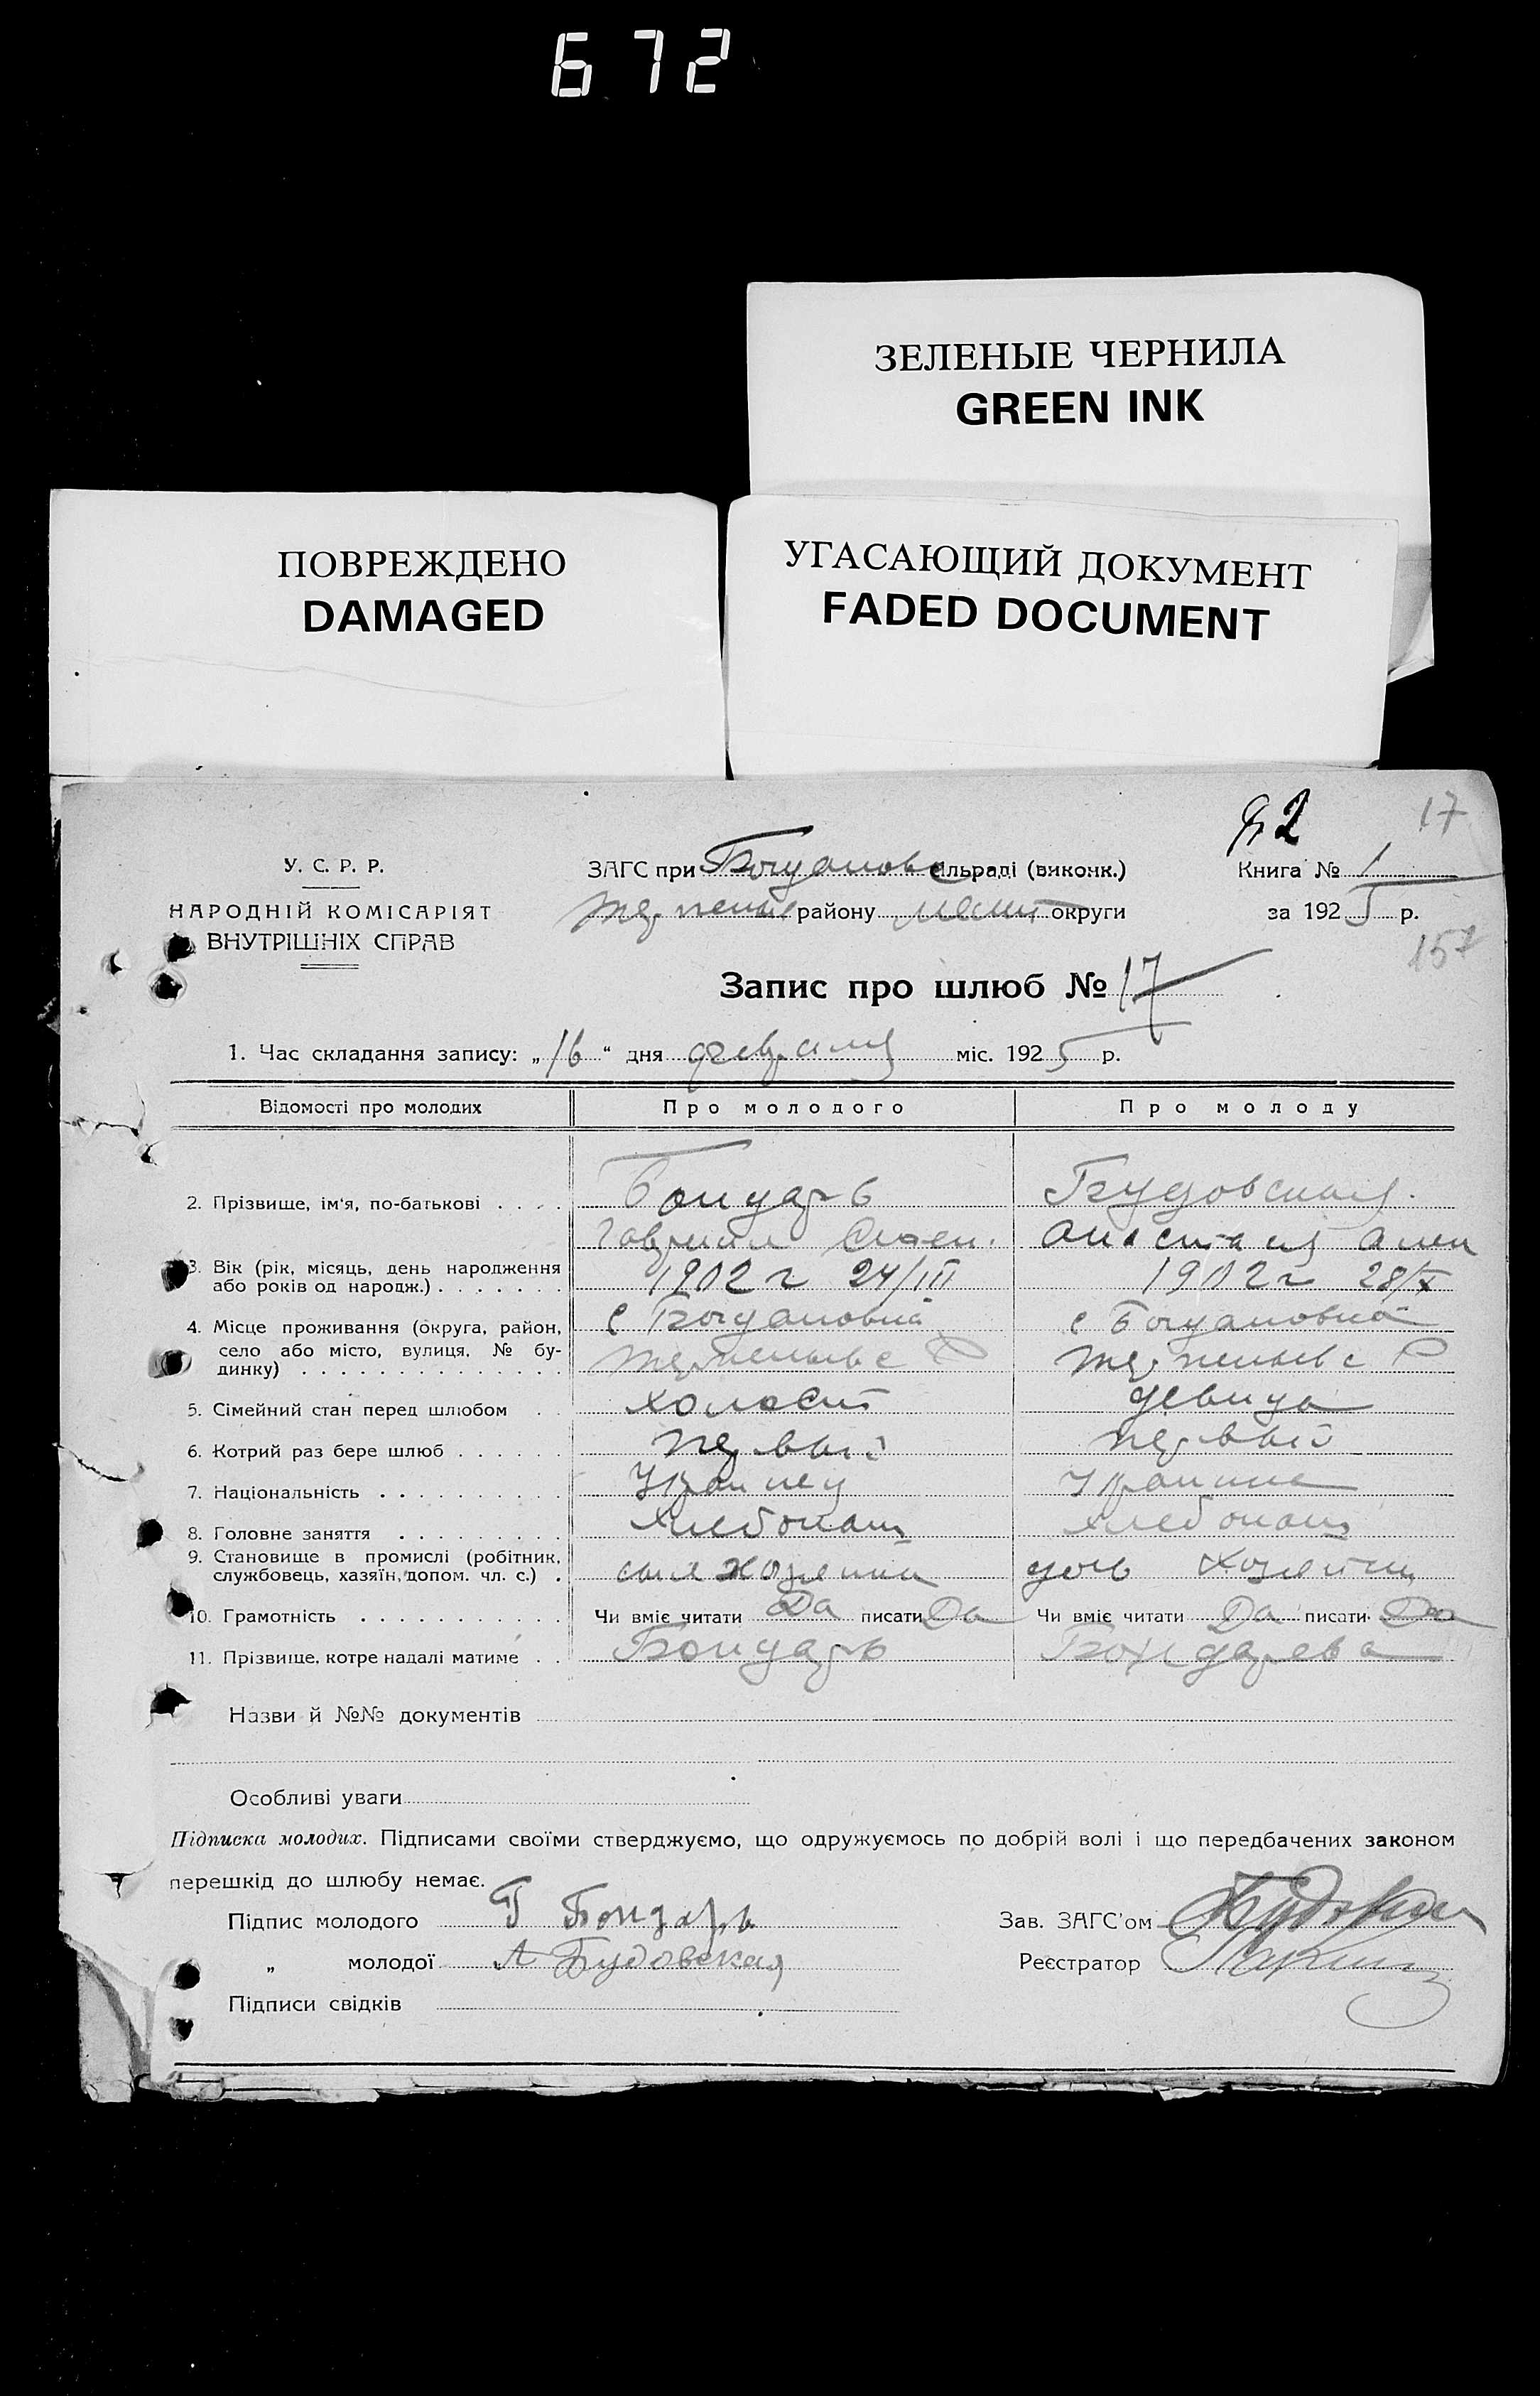 672
ЗЕЛЕНЫЕ ЧЕРНИЛА
GREEN INK
ПОВРЕЖДЕНО
DAMAGED
УГАСАЮЩИЙ ДОКУМЕНТ
FADED DOCUMENT
17
У. С. Р. Р.
НАРОДНІЙ КОМІСАРІЯТ
ВНУТРІШНІХ СПРАВ
ЗАГС при Богдановс сільраді (виконк.)
району округи
Книга № 1
за 1925 р.
157
Запис про шлюб № 17
1. Час складання запису: „16“ дня февраля міс. 1925 р.
Відомості про молодих Про молодого Про молоду
2. Прізвище, ім'я, по-батькові . . . . Бондарь Будовская
Гавриил Анастасия
3. Вік (рік, місяць, день народження або років од народж.) . . . . . . . 1902 г 24/III 1902 г 28/X
4. Місце проживання (округа, район, село або місто, вулиця, № будинку) . . . . . . . . . . . . . . с Богдановка с Богдановка
5. Сімейний стан перед шлюбом . . холост девица
6. Котрий раз бере шлюб . . . . . . первый первый
7. Національність . . . . . . . . . . Украинец Украинка
8. Головне заняття . . . . . . . . . хлебопаш хлебопаш
9. Становище в промислі (робітник, службовець, хазяїн, допом. чл. с.) . сын хозяина дочь хозяина
10. Грамотність . . . . . . . . . . . . Чи вміє читати Да писати Да Чи вміє читати Да писати Да
11. Прізвище, котре надалі матиме . . Бондарь Бондарева
Назви й №№ документів
Особливі уваги
Підписка молодих. Підписами своїми стверджуємо, що одружуємось по добрій волі і що передбачених законом
перешкід до шлюбу немає.
Підпис молодого Г Бондарь
Зав. ЗАГС'ом
„ молодої А Будовская
Реєстратор
Підписи свідків